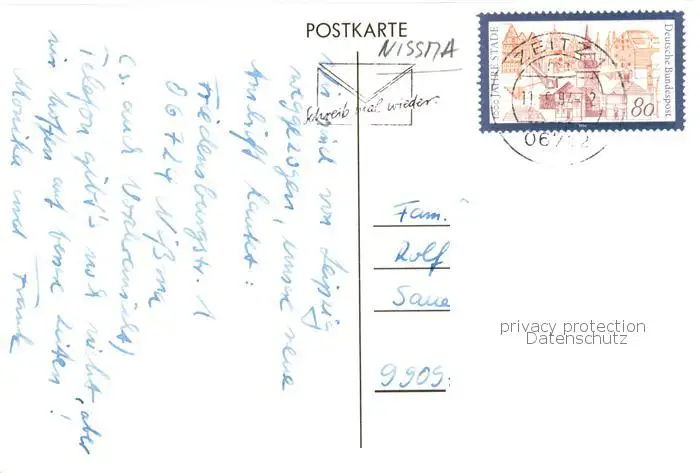 POSTKARTE
NISSMA
Schreib mal wieder.
1000 JAHRE STADE
Deutsche Bundespost
80
ZEITZ
06712
Wir sind von Leipzig
weggezogen, unsere neue
Anschrift lautet:
Friedensburgstr. 1
06724 Nißma
(s. auch Vorderansicht)
Telefon gibt's noch nicht, aber
wir hoffen auf bessere Zeiten!
Monika und Frank
Fam.
Rolf
Saue
9909
privacy protection
Datenschutz